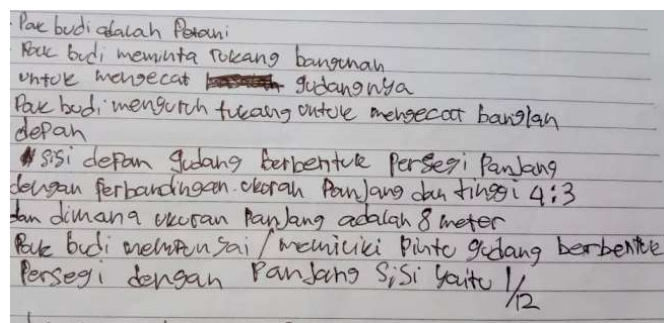 Pak budi adalah Petani
Pak budi meminta tukang bangunan
untuk mengecat gudangnya
Pak budi menguruh tukang untuk mengecat bangian
depan
sisi depan gudang berbentuk persegi Panjang
dengan perbandingan ukuran Panjang dan tinggi 4:3
dan dimana ukuran Panjang adalah 8 meter
Pak budi mempunyai / memiliki pintu gudang berbentuk
Persegi dengan Panjang sisi yaitu 1/12